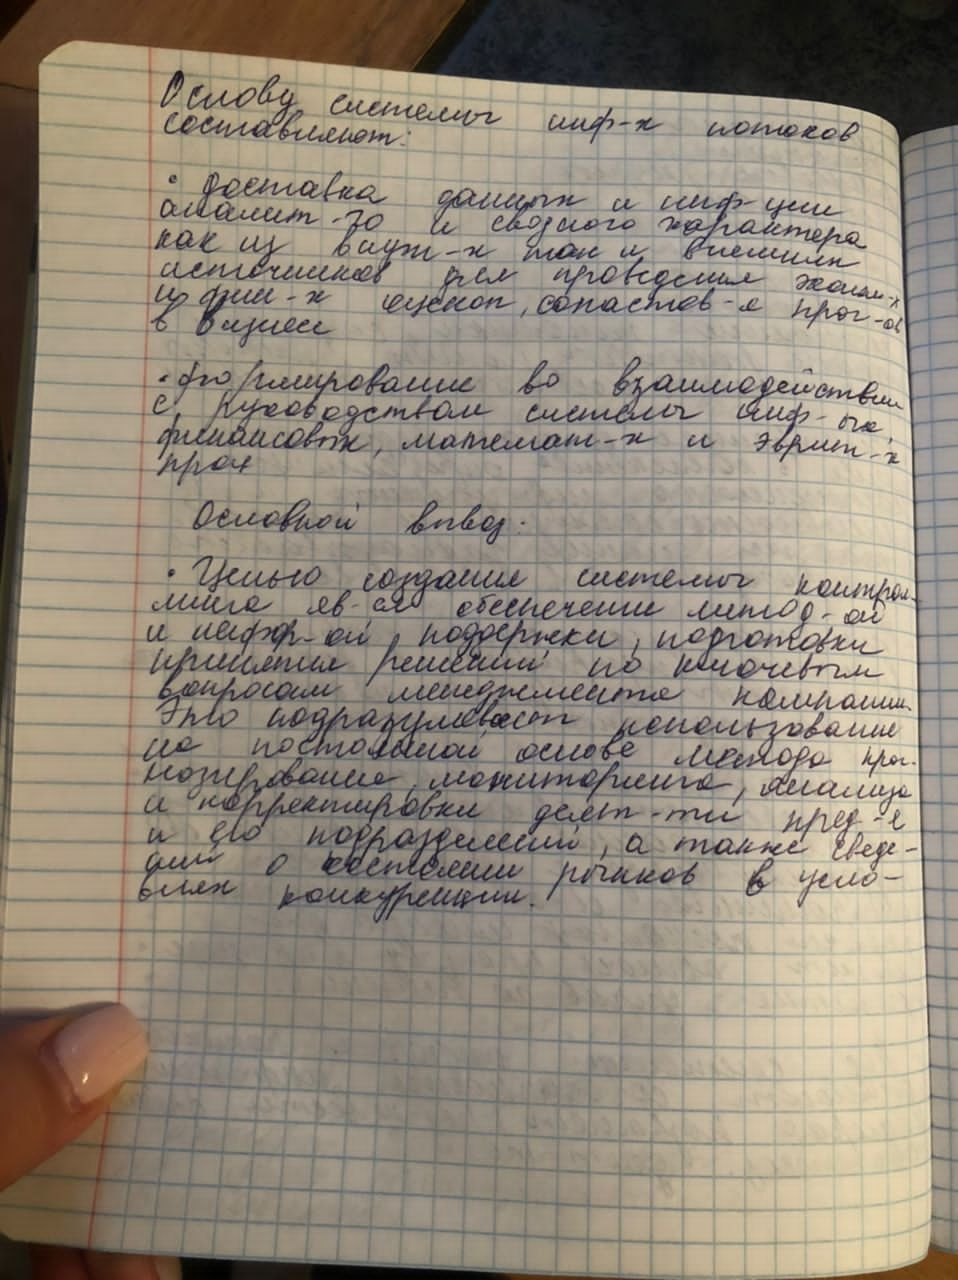 Основу системы инф-х потоков
составляют:
• доставка данных и инф-ции
аналит-го и сводного характера
как из внут-х так и внешних
источников для проведения эконом-х
и фин-х оценок, сопастов-я прог-ов
в бизнесе
• формирование во взаимодействии
с руководством системы инф-ых,
финансовых, математ-х и эврит-х
Основной вывод:
• Целью создания системы контрол-
линга яв-ся обеспечение метод-ой
и инфор-ой поддержки, подготовки
принятия решений по ключевым
вопросам менеджмента компании.
Это подразумевает использование
на постоянной основе метода прог-
нозирования, мониторинга, анализа
и корректировки деят-ти пред-я
и его подразделений, а также сведе-
ний о состоянии рынков в усло-
виях конкуренции.